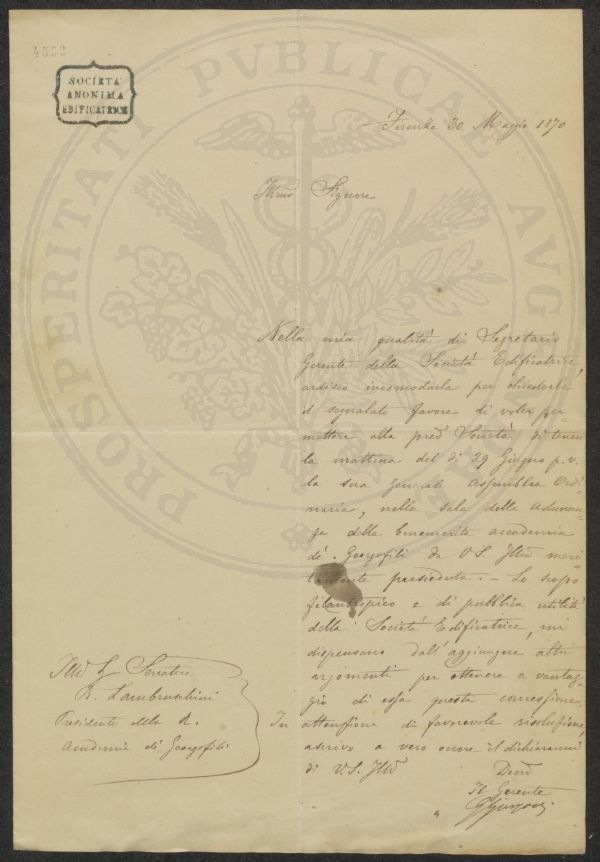 4552
SOCIETÀ
ANONIMA
EDIFICATRICE
PROSPERITATI PVBLICAE AVG
Firenze 30. Maggio 1870
Illmo Signore
Nella mia qualità di Segretario
Gerente della Società Edificatrice,
ardisco incomodarla per chiederle
il segnalato favore di voler per-
mettere alla pred Società di tenere
la mattina del dì 29 Giugno p.v.
la sua Generale Assemblea Ordi
naria, nella sala delle Adunan-
ze della benemerita accademia
dei Georgofili da V.S. Illma meri
tamente presieduta. - Lo scopo
filantropico e di pubblica utilità
della Società Edificatrice, mi
dispensano dall'aggiungere altri
argomenti per ottenere a vantag-
gio di essa questa concessione.
In attenzione di favorevole risoluzione,
ascrivo a vero onore il dichiararmi
di V.S. Illma
Devmo
Il Gerente
Illmo Sg Senatore
R. Lambruschini
Presidente della R.
Accademia di Georgofili